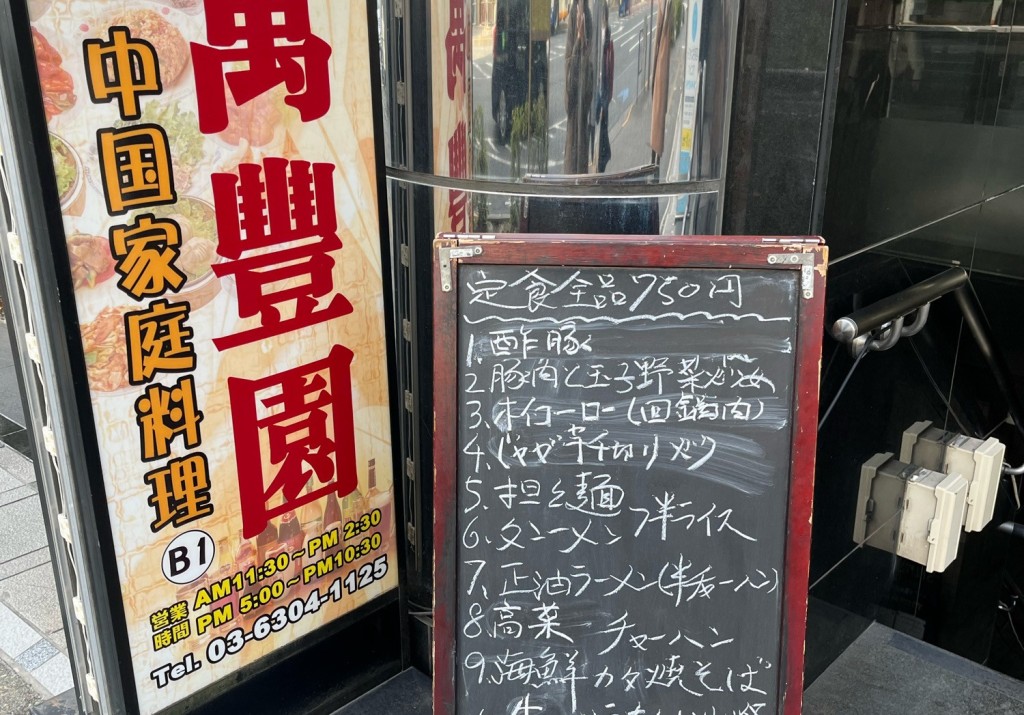 萬豐園
中国家庭料理
B1
営業時間
AM11:30~PM 2:30
PM 5:00~PM10:30
Tel. 03-6304-1125
定食全品750円
1.酢豚
2.豚肉と玉子野菜炒め
3.ホイコーロー(回鍋肉)
4.ジャガ芋千切り炒
5.担々麺
6.タンメン 半ライス
7.正油ラーメン(半チャーハン)
8.高菜 チャーハン
9.海鮮カタ焼そば